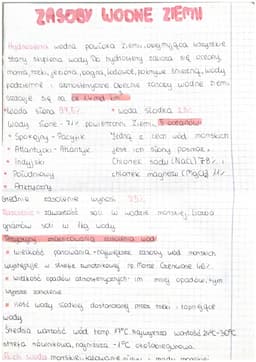 ZASOBY WODNE ZIEMI
Hydrosfera wodna powłoka Ziemi, obejmująca wszystkie
stany skupienia wody. Do hydrosfery zalicza się oceany,
morza, rzeki, jeziora, bagna, lodowce, pokrywę śnieżną, wody
podziemne i atmosferyczne obecnie zasoby wodne ziemi
szacuje się na ok 1,4 mld km³
• Woda słona 97,5% • woda słodka 2,5%
Wody słone - 71% powierzchni Ziemi, 5 oceanów
• Spokojny - Pacyfik Jedną z cech wód morskich
• Atlantycki - Atlantyk jest ich słony posmak,
• Indyjski Chlorek sodu (NaCl) 78% i
• Południowy chlorek magnezu (MgCl) 11%
• Arktyczny
Średnie zasolenie wynosi 35‰
Zasolenie - zawartość soli w wodzie morskiej, liczba
gramów soli w 1kg wody
Przyczyny zróżnicowania zasolenia wód
• wielkość parowania - największe zasoby wód morskich
występuje w strefie zwrotnikowej np. Morze Czerwone 40‰
• wielkość opadów atmosferycznych im mniej opadów, tym
wyższe zasolenie
• ilość wody słodkiej dostarczanej przez rzeki i topniejące
wody
Średnia wartość wód temp 17°C najwyższa wartość 26°C-30°C
strefa równikowa, najniższa -1°C okołobiegunowa.
Ruch wody morskiej: falowanie, pływy i prądy morskie